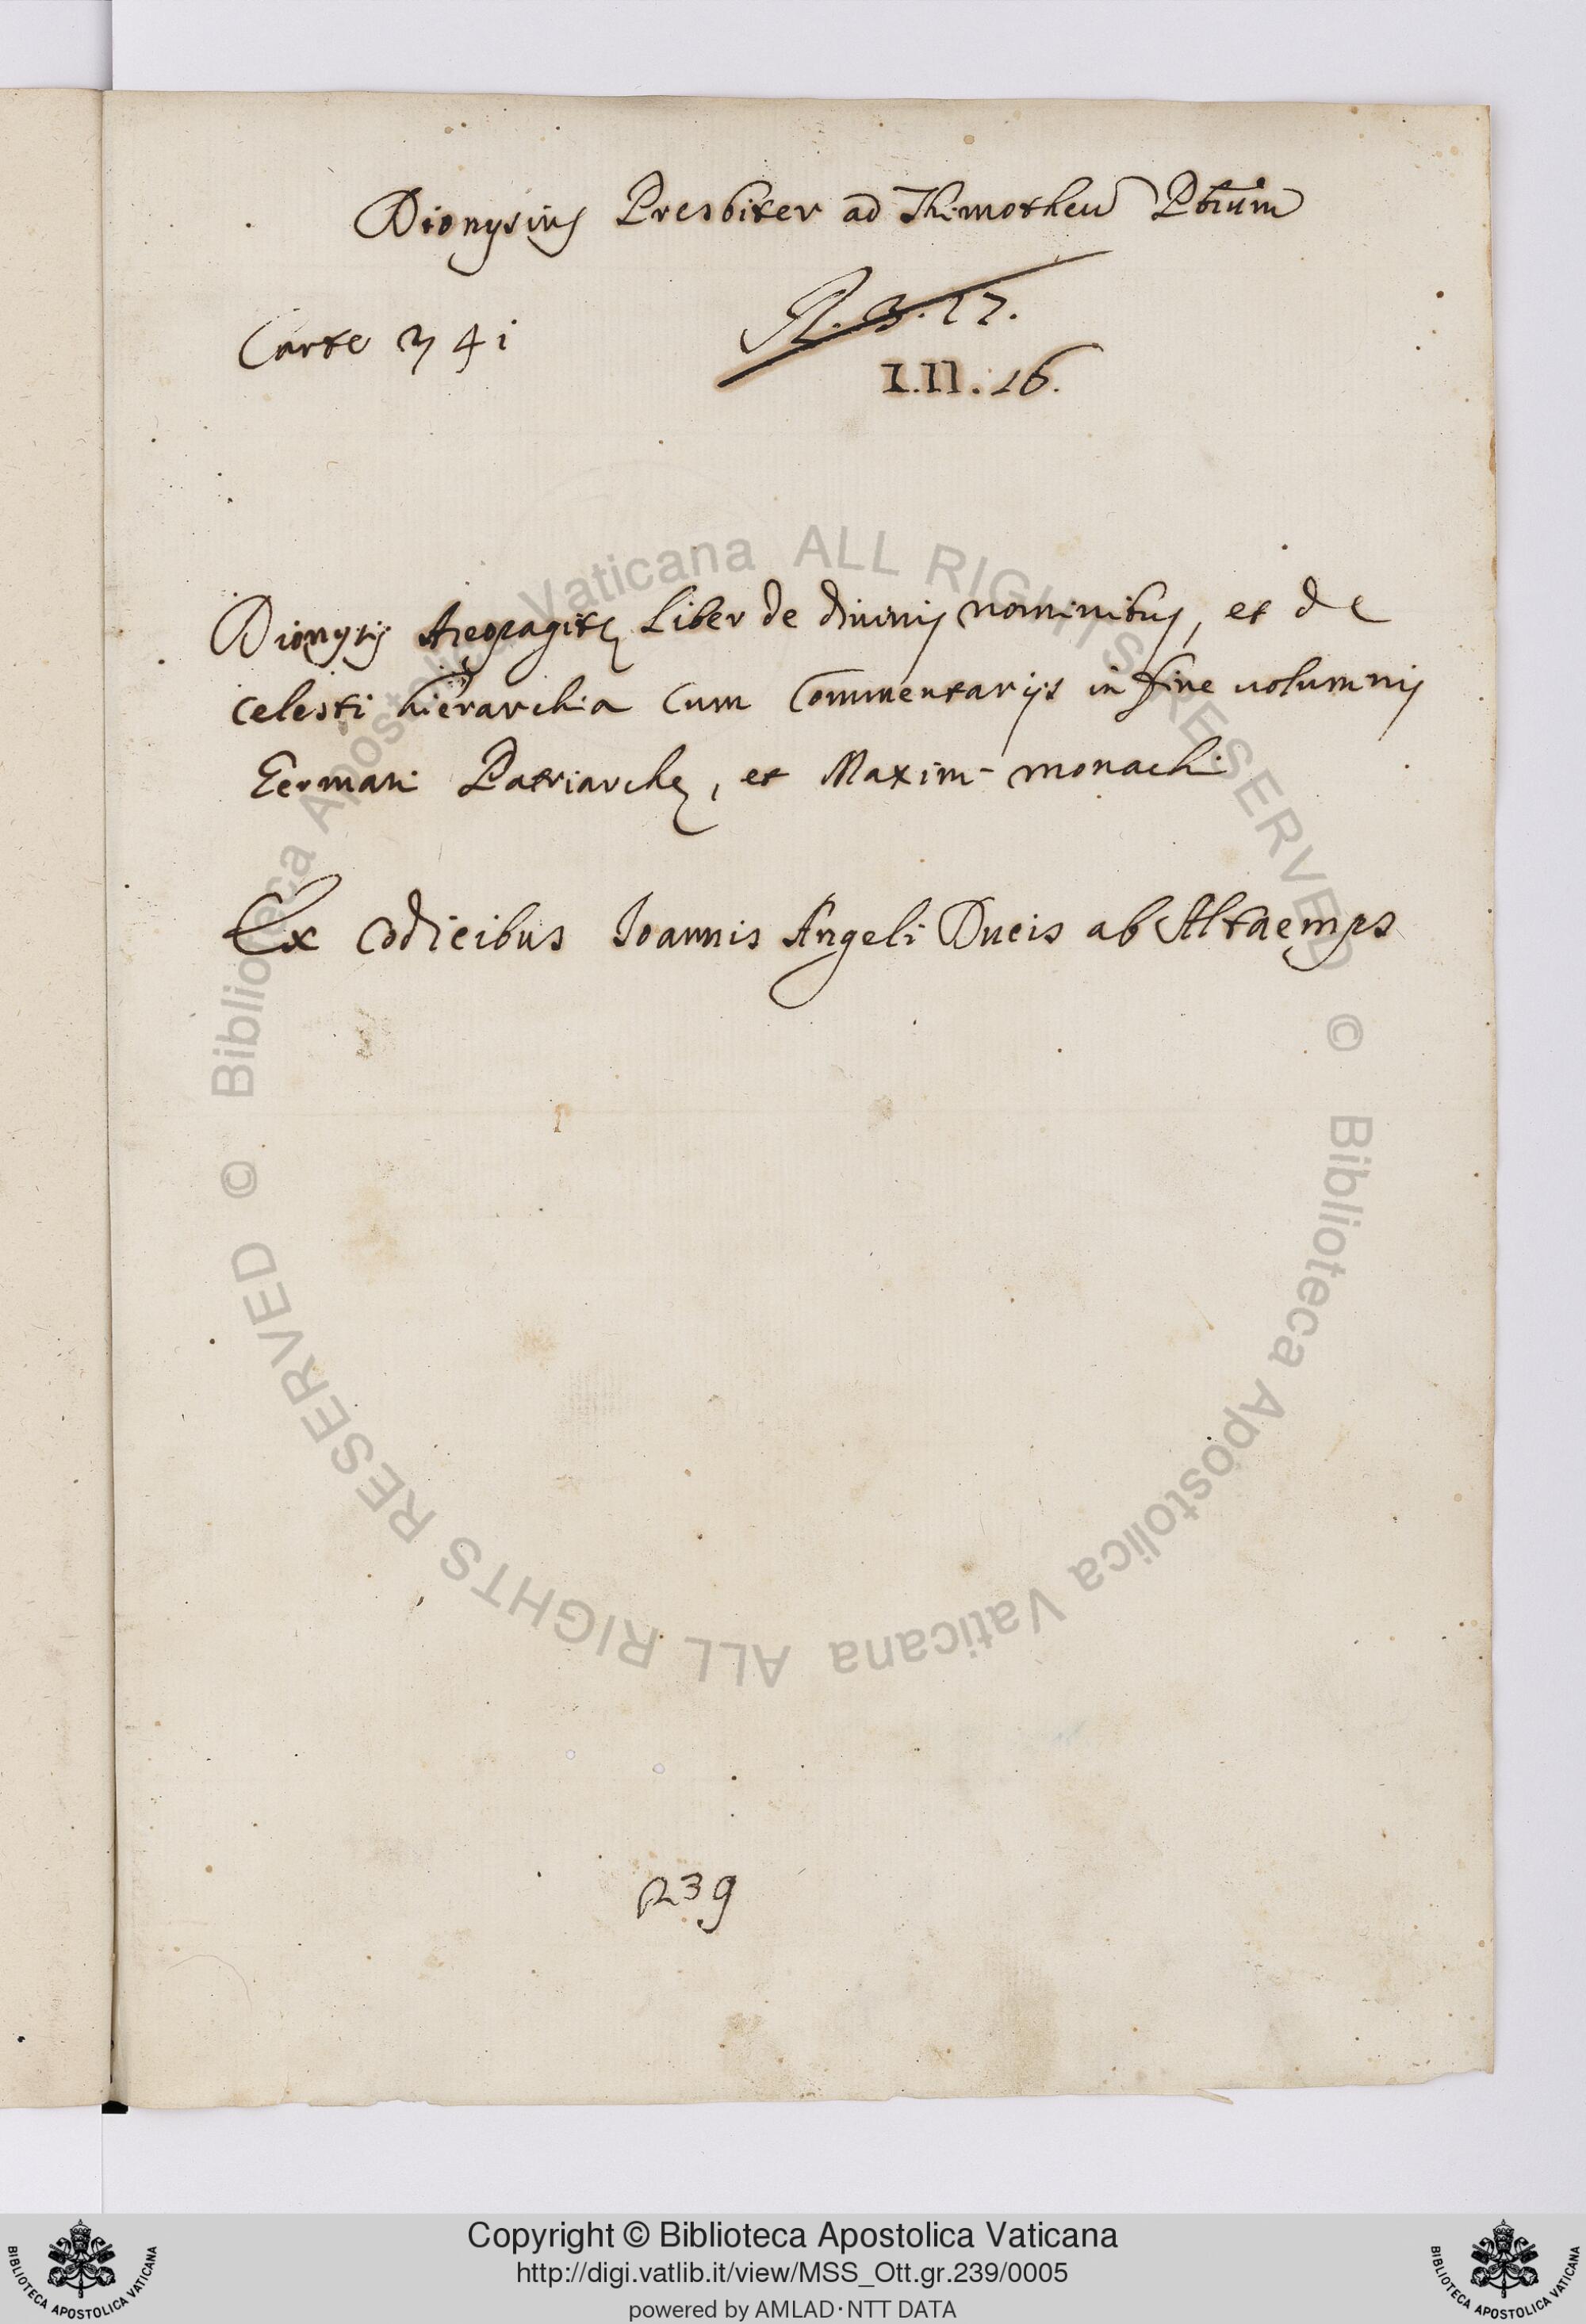 Dionysius Presbiter ad Thimotheū Pbrūm
R. 3. 17.
Carte 241
I.II. 16.
Dionysij Areopagitę Liber de diuinis nominibus, et de
celesti hierarchia cum Commentarijs in fine voluminis
Germani Patriarchę, et Maximi monachi
Ex codicibus Joannis Angeli Ducis ab Altaemps
239
© Biblioteca Apostolica Vaticana ALL RIGHTS RESERVED
© Biblioteca Apostolica Vaticana ALL RIGHTS RESERVED
Copyright © Biblioteca Apostolica Vaticana
http://digi.vatlib.it/view/MSS_Ott.gr.239/0005
powered by AMLAD·NTT DATA
BIBLIOTECA APOSTOLICA VATICANA
BIBLIOTECA APOSTOLICA VATICANA